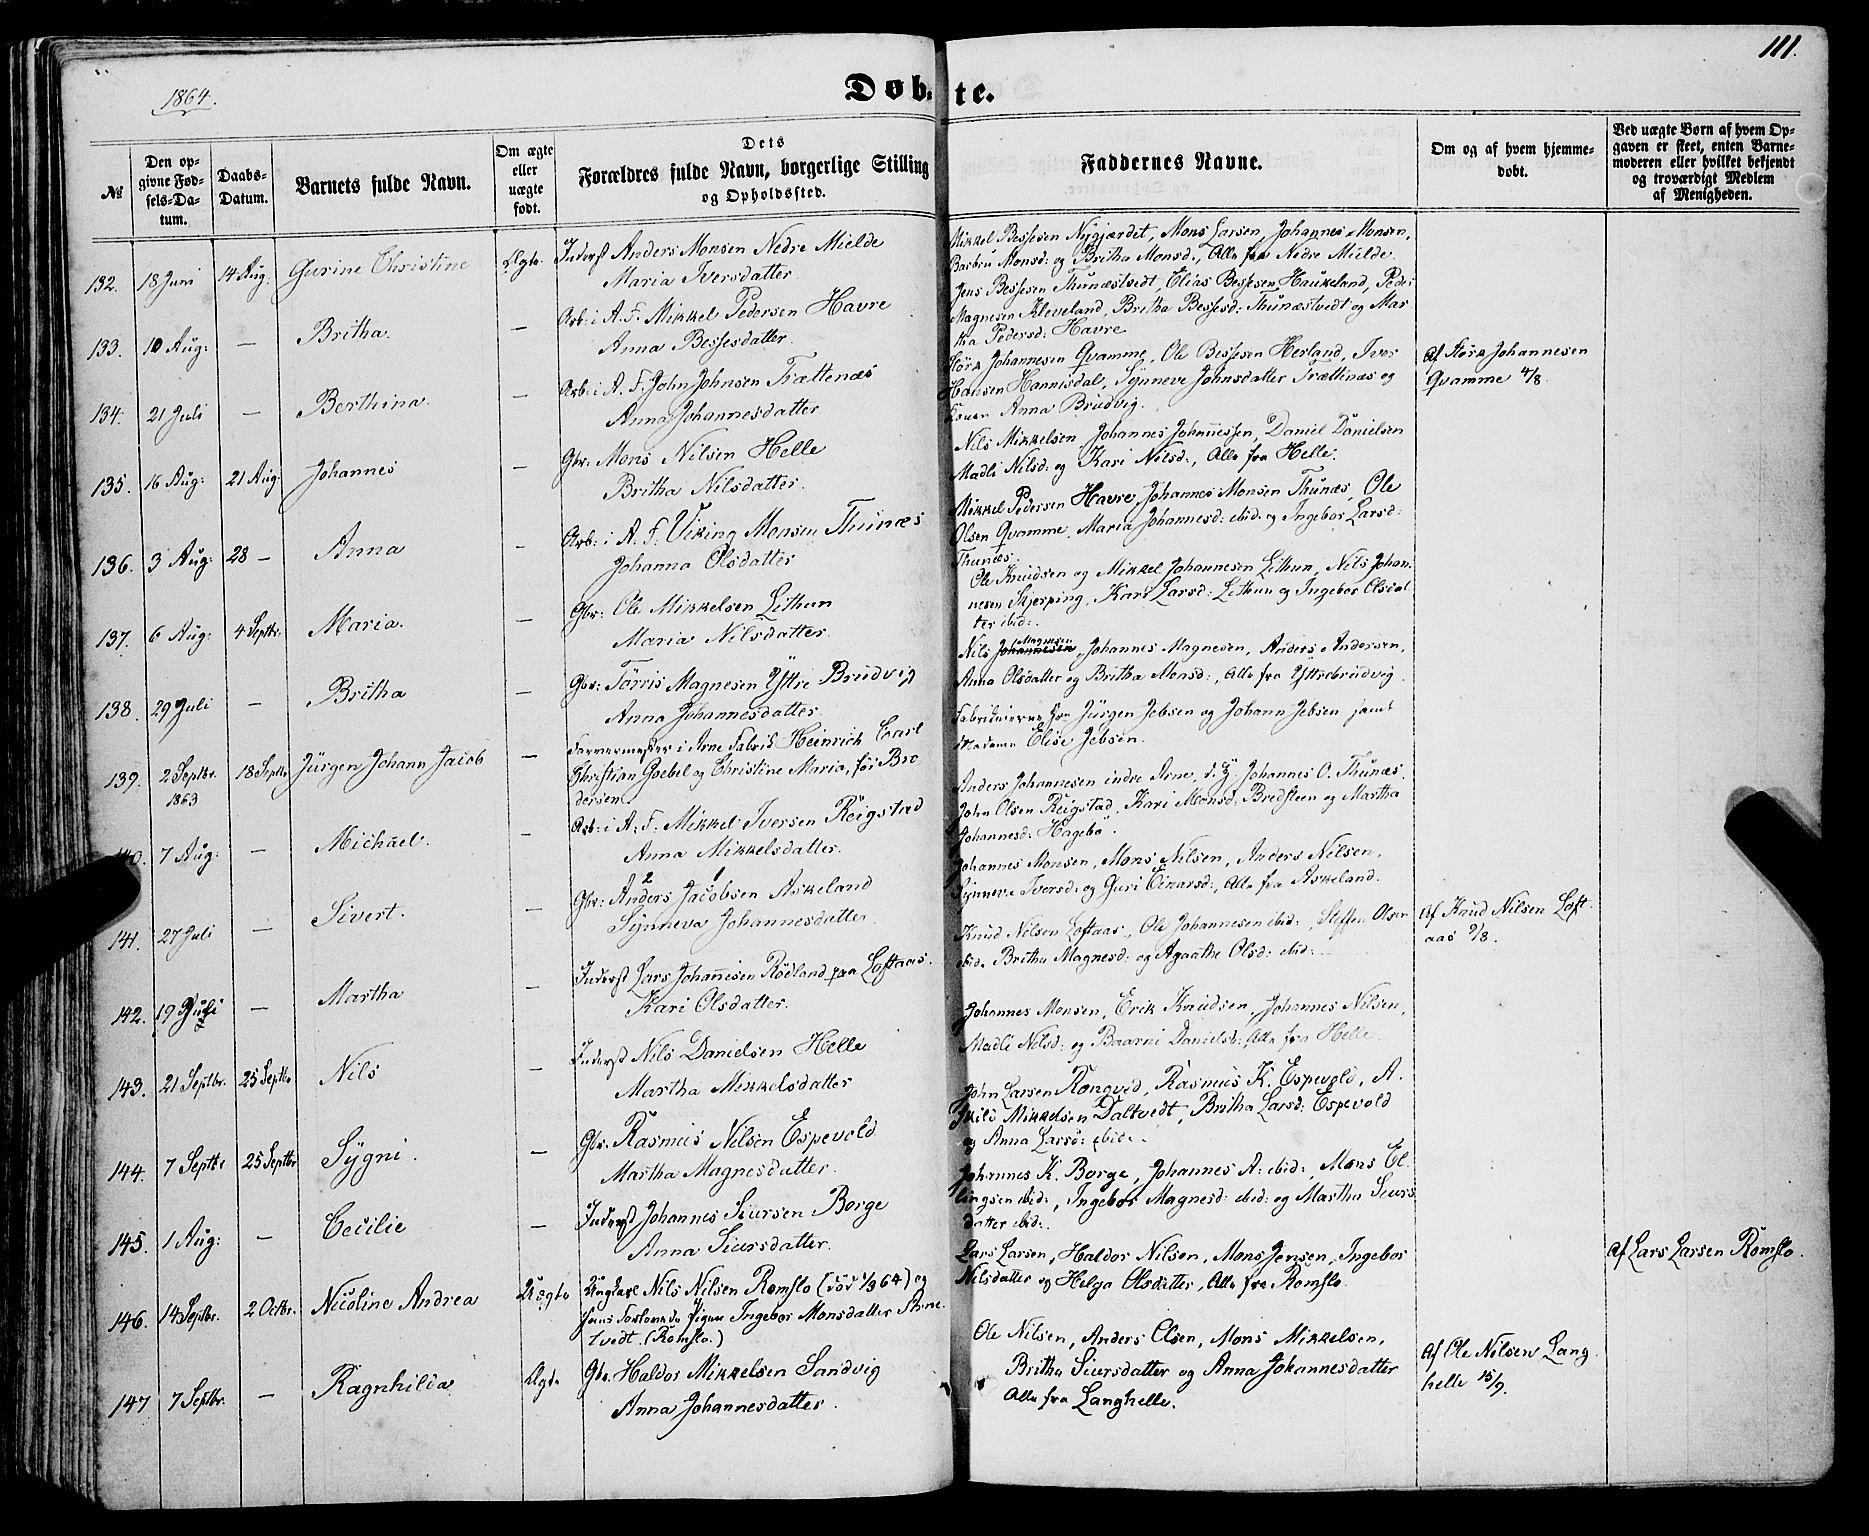 111.
1864.
Døbte.
№
Den opgivne Fødsels-Datum.
Daabs-Datum.
Barnets fulde Navn.
Om ægte eller uægte født.
Dets Forældres fulde Navn, borgerlige Stilling og Opholdssted.
Faddernes Navne.
Om og af hvem hjemmedøbt.
Ved uægte Børn af hvem Opgaven er skeet, enten Barnemoderen eller hvilket bekjendt og troværdigt Medlem af Menigheden.
132. 18 Juni 14 Aug: Gurine Christine Ægte.
Inderst Anders Monsen Nedre Mielde
Maria Iversdatter
Mikkel Bessesen Nygjærdet, Mons Larsen, Johannes Monsen,
Barbru Monsd: og Britha Monsd:, Alle fra Nedre Mielde.
133. 10 Aug: — Britha. —
Arb: i A. F. Mikkel Pedersen Havre
Anna Bessesdatter.
Jens Bessesen Thunæstvedt, Elias Bessesen Haukeland, Peder
Magnesen Kleveland, Britha Bessesd: Thunæstvedt og Mar
tha Pedersd: Havre
134. 21 Juli — Berthina. —
Arb: i A. F. John Johnsen Trættenæs
Anna Johannesdatter
Størk Johannesen Qvamme, Ole Bessesen Herland, Iver
Hansen Hannisdal, Synneve Johnsdatter Trættenæs og
Konen Anna Brudvig.
Af Størk Johannesen
Qvamme 4/8.
135. 16 Aug: 21 Aug: Johannes —
Gbr: Mons Nilsen Helle
Britha Nilsdatter.
Nils Mikkelsen, Johannes Johannessen, Daniel Danielsen
Madli Nilsd: og Kari Nilsd:, Alle fra Helle.
136. 3 Aug: 28 — Anna —
Arb: i A. F. Viking Monsen Thunæs
Johanna Olsdatter
Mikkel Pedersen Havre, Johannes Monsen Thunæs, Ole
Olsen Qvamme, Maria Johannesd: ibid: og Ingebor Larsd:
Thunæs.
137. 6 Aug: 4 Septbr: Maria. —
Gbr: Ole Mikkelsen Lithun
Maria Nilsdatter.
Ole Knudsen og Mikkel Johannesen Lithun, Nils Johan
nesen Skjerping, Kari Larsd: Lithun og Ingebor Olsdat
ter ibid:.
138. 29 Juli — Britha —
Gbr: Tørris Magnesen Yttre Brudvig
Anna Johannesdatter.
Nils Johannesen Magnesen, Johannes Magnesen, Anders Andersen,
Anna Olsdatter og Britha Monsd:, Alle fra Yttrebrudvig.
139. 2 Septbr. 1863 18 Septbr Jürgen Johann Jacob —
Farvermester i Arne Fabrik Heinrich Carl
Christian Goebel og Christine Maria, før Bro
dersen
Fabrikeierne Hrr Jürgen Jebsen og Johann Jebsen samt
Madame Elise Jebsen.
140. 7 Aug: — Michael. —
Arb: i A. F. Mikkel Iversen Reigstad
Anna Mikkelsdatter.
Anders Johannesen indre Arne, d. y. Johannes O. Thunæs,
John Olsen Reigstad, Kari Monsd: Bredsteen og Martha
Johannesd: Hagebø.
141. 27 Juli — Sivert. —
2 1
Gbr: Anders Jacobsen Askeland
Synneva Johannesdatter
Johannes Monsen, Mons Nilsen, Anders Nilsen,
Synneva Iversd: og Guri Einarsd:, Alle fra Askeland.
142. 19 Juli — Martha —
Inderst Lars Johannesen Rødland paa Loftaas.
Kari Olsdatter.
Knud Nilsen Loftaas, Ole Johannesen ibid:, Steffen Olsen
ibid. Britha Magnesd: og Agaathe Olsd: ibid:
Af Knud Nilsen Loft
aas 9/8.
143. 21 Septbr. 25 Septbr Nils —
Inderst Nils Danielsen Helle
Martha Mikkelsdatter
Johannes Monsen, Erik Knudsen, Johannes Nilsen,
Madli Nilsd: og Baarni Danielsd: Alle fra Helle.
144. 7 Septbr 25 Septbr Sygni. —
Gbr. Rasmus Nilsen Espevold
Martha Magnesdatter.
John Larsen Rongved, Rasmus K. Espevold, A.
skild Mikkelsen Daltvedt, Britha Larsd: Espevold
og Anna Larsd: ibid:.
145. 1 Aug: — Cecilie —
Inderst Johannes Siursen Borge
Anna Siursdatter.
Johannes K. Borge, Johannes A. ibid:, Mons El
lingsen ibid:, Ingebor Magnesd: ibid: og Martha Siurs
datter ibid:.
146. 14 Septbr. 2 Octbr. Nicoline Andrea Uægte
Ungkarl Nils Nilsen Romslo (død 1/3 64) og
hans Forlovede Pigen Ingebor Monsdatter Arne
tvedt. (Romslo.)
Lars Larsen, Haldor Nilsen, Mons Jensen, Ingebor
Nilsdatter og Helga Olsdatter, Alle fra Romslo.
Af Lars Larsen Romslo.
147 7 Septbr. — Ragnhilda Ægte
Gbr. Haldor Mikkelsen Sandvig
Anna Johannesdatter.
Ole Nilsen, Anders Olsen, Mons Mikkelsen,
Britha Siursdatter og Anna Johannesdatter
Alle fra Langhelle.
Af Ole Nilsen Lang
helle 15/9.